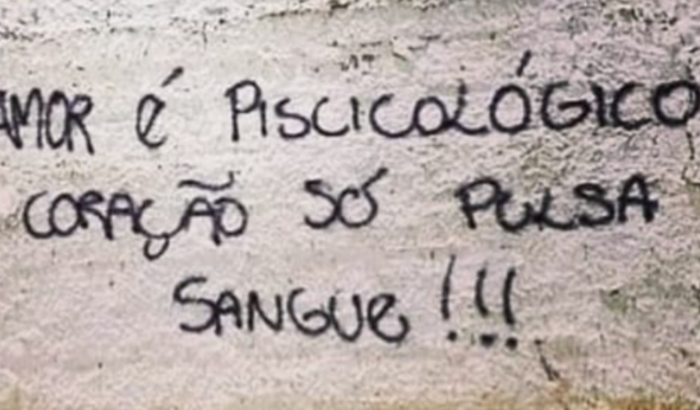 AMOR é PISCICOLÓGICO
CORAÇÃO SÓ PULSA
SANGUe !!!